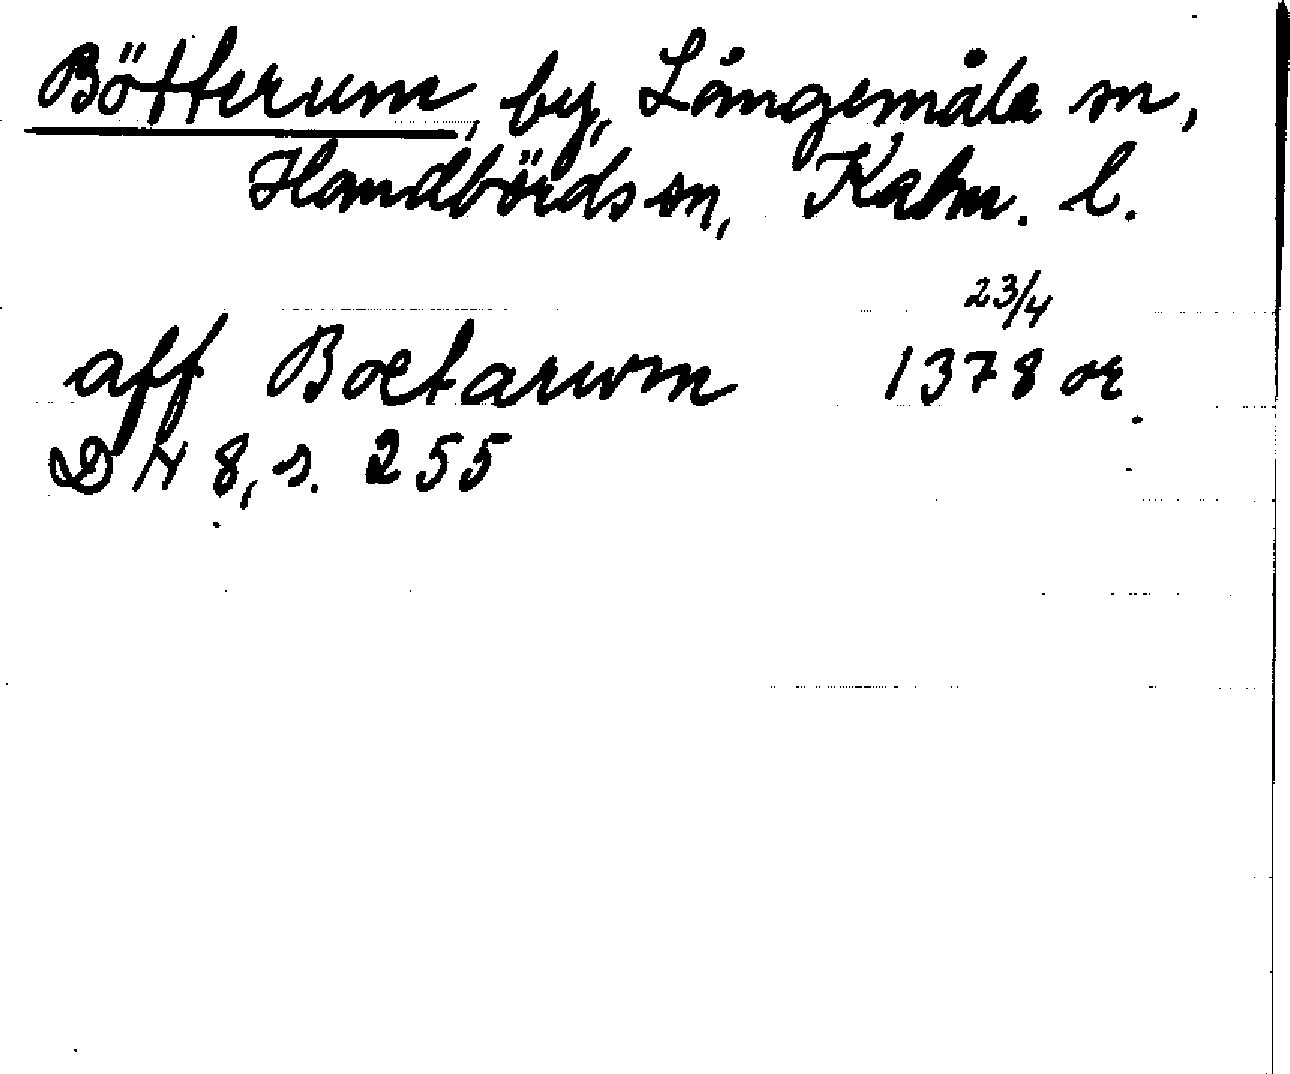 Bötterum, by, Långemåla sn,
Handbörds sn, Kalm. l.
23/4
aff Boetarwm 1378 or.
DN 8, s. 255